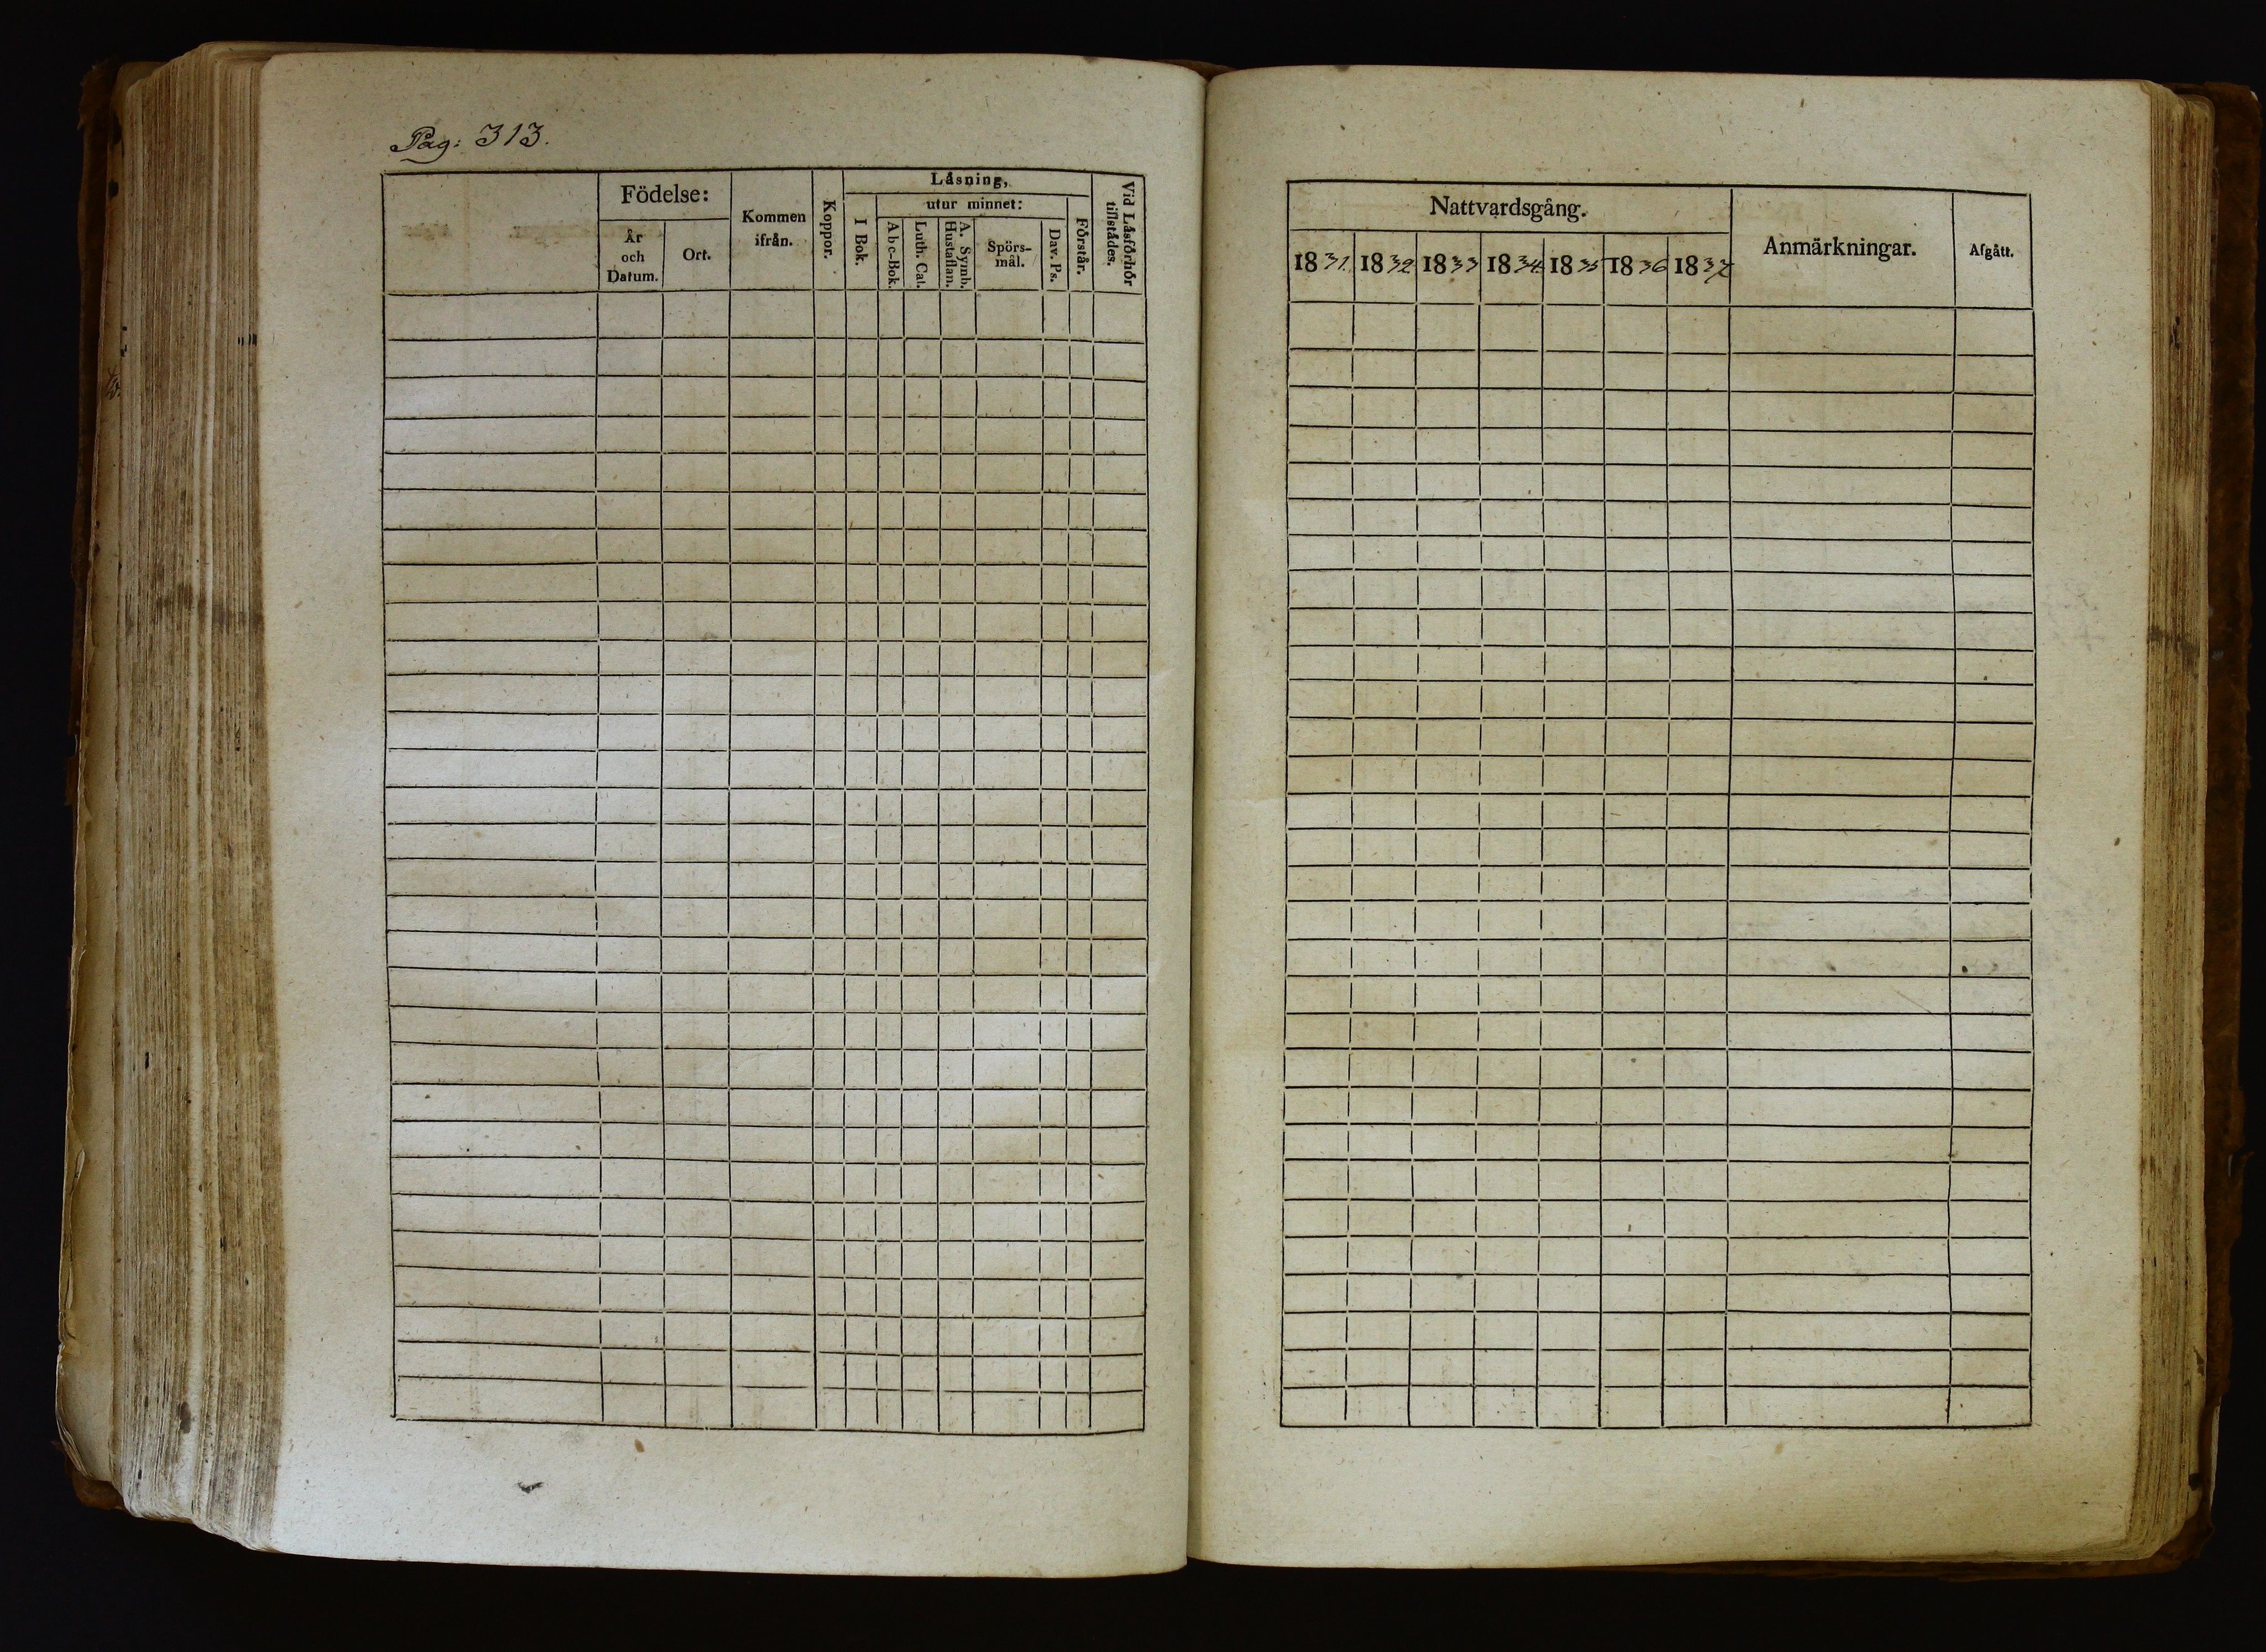 Pag: 313.
Födelse:
År
och
Datum.
Ort.
Kommen
ifrån.
Koppor.
Läsning,
I Bok.
utur minnet:
Abc-Bok.
Luth. Cat.
A. Symb.
Hustaflan.
Spörs-
mål.
Dav. Ps.
Förstår.
Vid Läsförhör
tillstädes.
Nattvardsgång.
1831. 1832 1833 1834 1835 1836 1837
Anmärkningar.
Afgått.